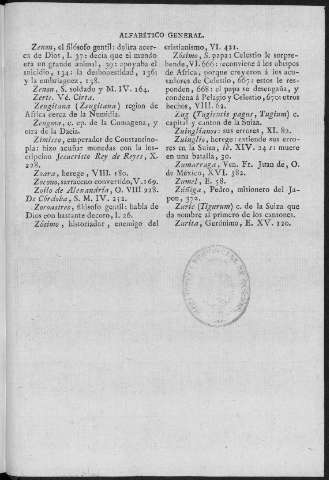 ALFABÉTICO GENERAL.
Zenon, el filósofo gentil: delira acerca
de Dios, I. 37: decia que el mundo
era un grande animal, 39: apoyaba el
suicidio, 134: la deshonestidad, 136:
y la embriaguez, 138.
Zenon, S. soldado y M. IV. 264.
Zerte. Vé. Cirta.
Zeugitana (Zeugitana) region de
Africa cerca de la Numidia.
Zeugma, c. ep. de la Comagena, y
otra de la Dacia.
Zimisco, emperador de Constantinopla:
hizo acuñar monedas con la inscripcion
Jesucristo Rey de Reyes, X.
228.
Zoara, herege, VIII. 180.
Zocmo, sarraceno convertido, V. 169.
Zoilo de Alexandría, O. VIII 228.
De Córdoba, S. M. IV. 251.
Zoroastres, filósofo gentil: habla de
Dios con bastante decoro, I. 26.
Zósimo, historiador, enemigo del
cristianismo, VI. 421.
Zósimo, S. papa: Celestio le sorprehende,
VI. 666: reconviene á los obispos
de Africa, porque creyeron á los acusadores
de Celestio, 667: estos le responden,
668: el papa se desengaña, y
condena á Pelagio y Celestio, 670: otros
hechos, VIII. 62.
Zug (Tugiensis pagus, Tugium) c.
capital y canton de la Suiza.
Zuinglianos: sus errores, XI. 82.
Zuinglio, herege: extiende sus errores
en la Suiza, ib. XIV. 24: muere
en una batalla, 30.
Zumarraga, Ven. Fr. Juan de, O.
de México, XVI. 382.
Zumel, E. 58.
Zúñiga, Pedro, misionero del Japon,
372.
Zuric (Tigurum) c. de la Suiza que
da nombre al primero de los cantones.
Zurita, Gerónimo, E. XV. 120.